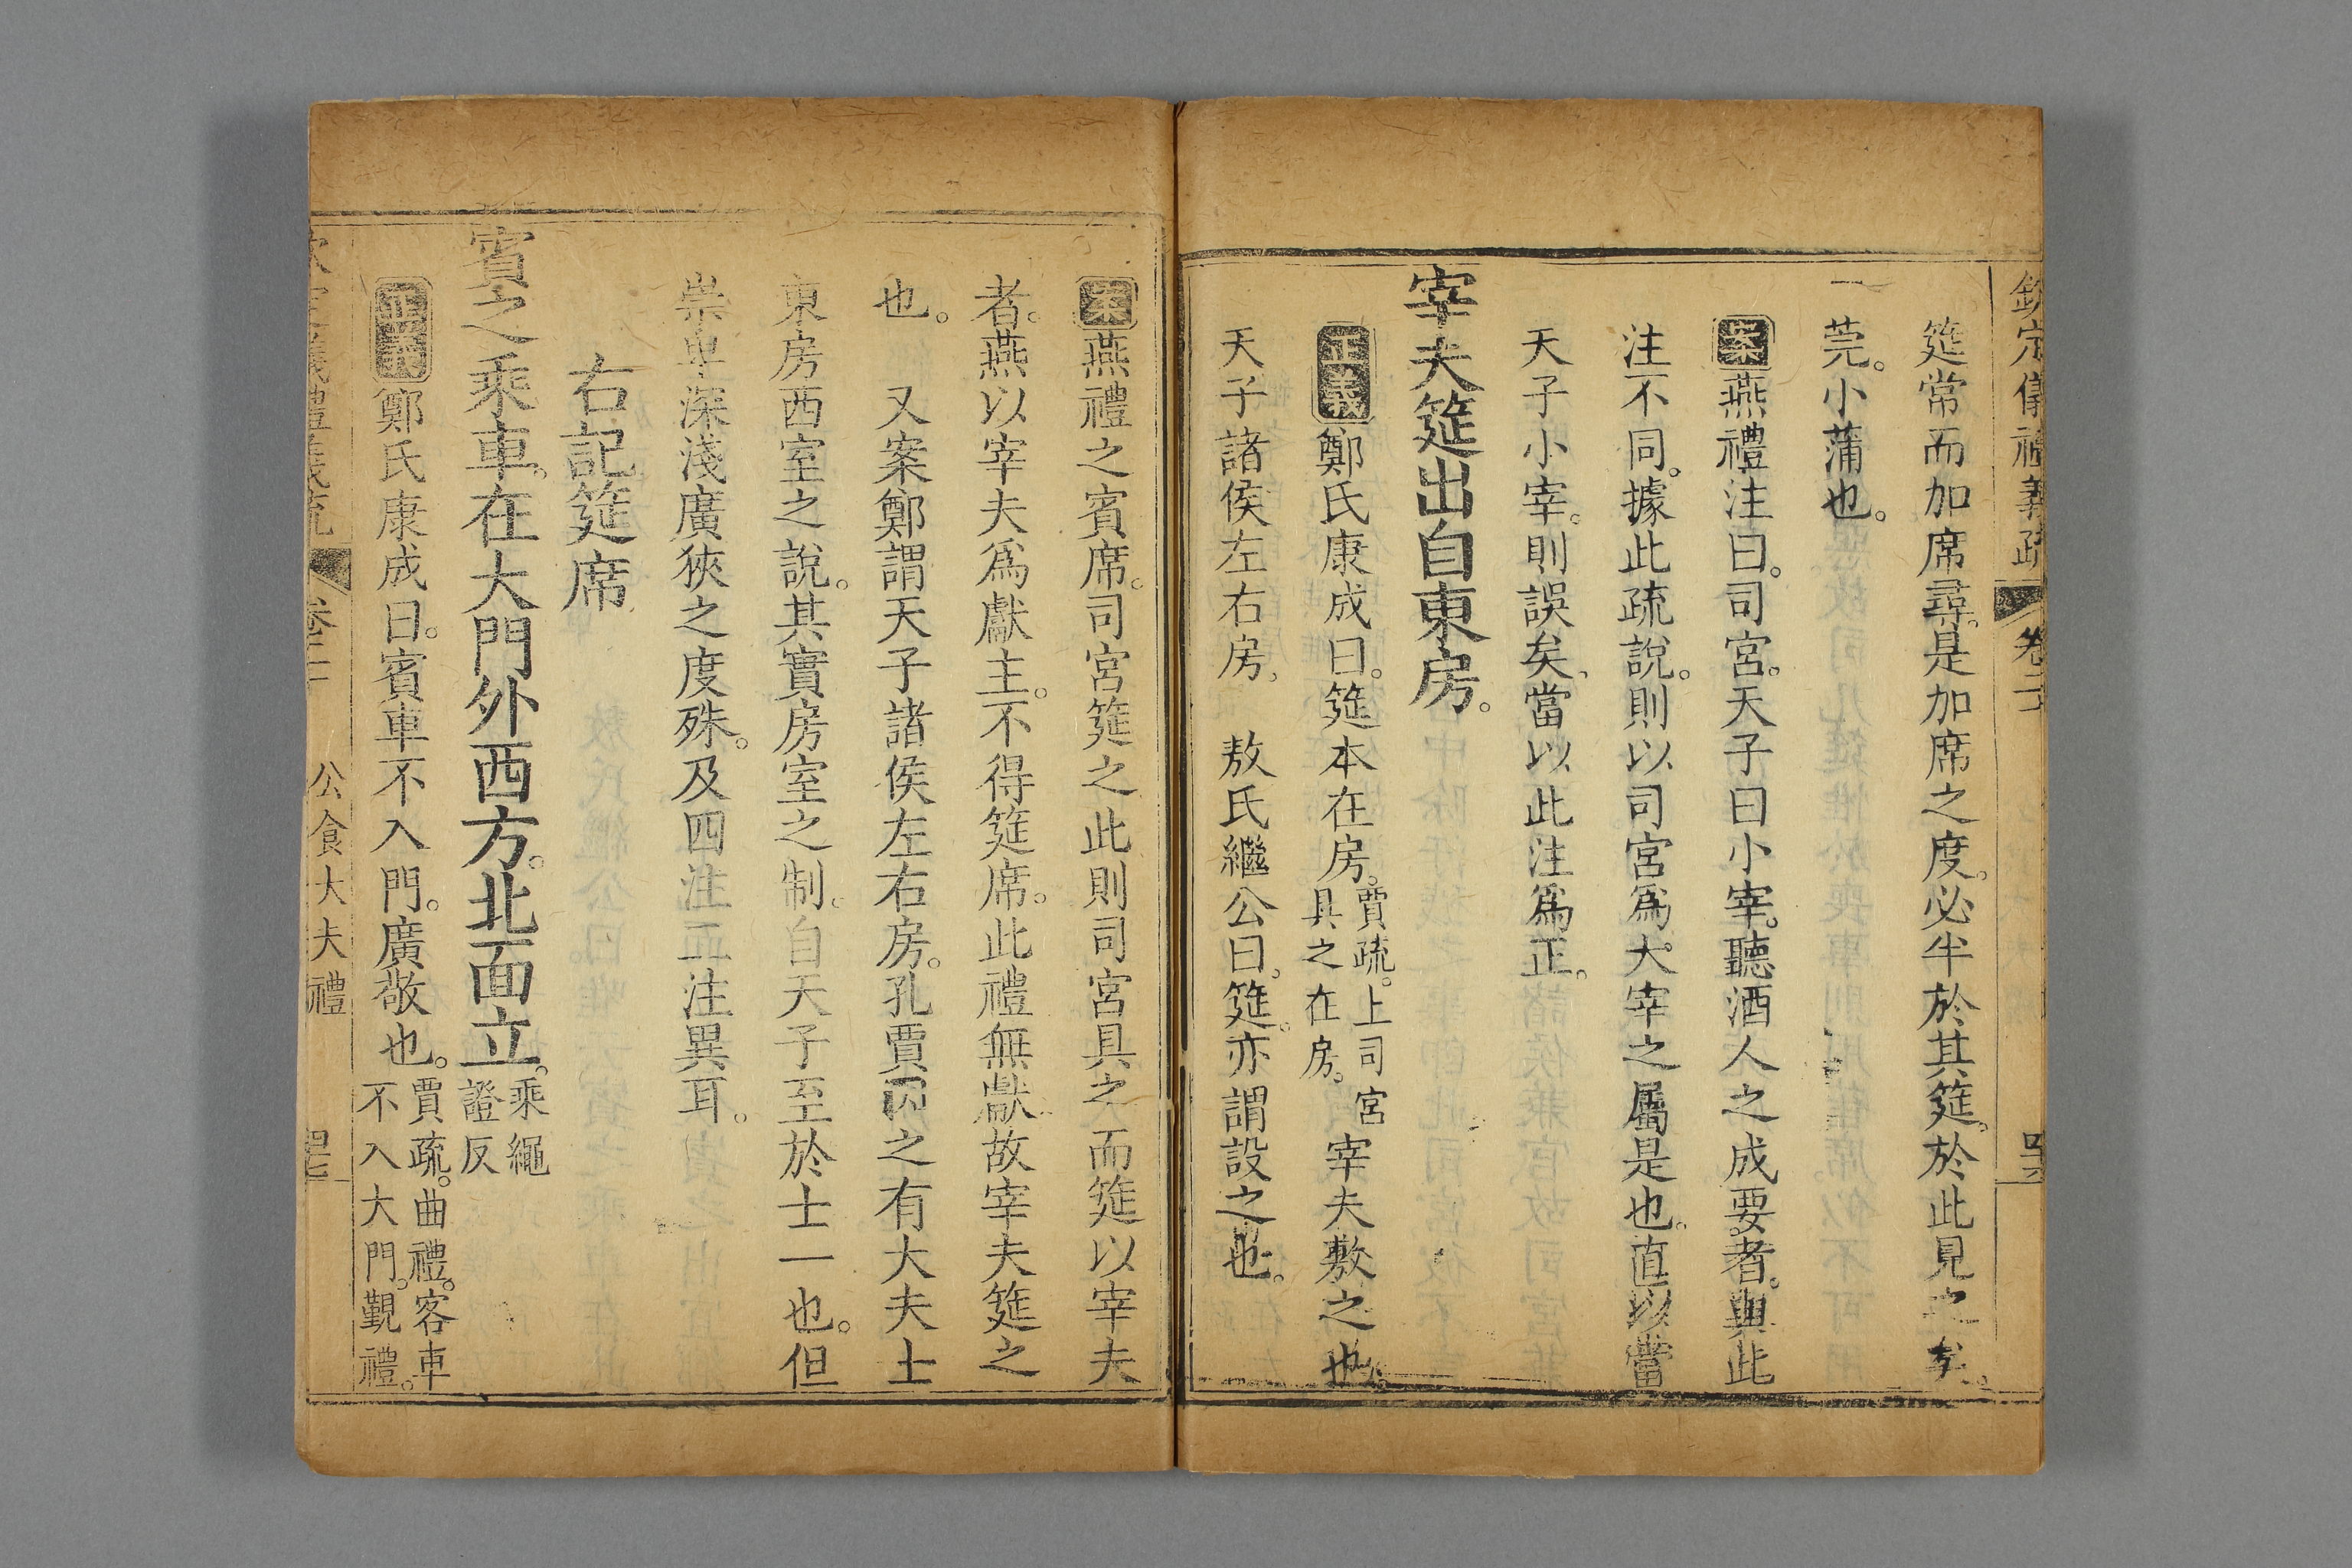 欽定儀禮義疏 卷二十
筵常而加席尋。是加席之度。必半於其筵。於此見之矣。
莞。小蒲也。
案燕禮注曰。司宮。天子曰小宰。聽酒人之成要者。與此
注不同。據此疏說。則以司宮爲大宰之屬是也。直以當
天子小宰。則誤矣。當以此注爲正。
宰夫筵出自東房。
正義鄭氏康成曰。筵本在房。賈疏。上司宮具之在房。宰夫敷之也。
天子諸侯左右房。 敖氏繼公曰。筵。亦謂設之也。
案燕禮之賓席。司宮筵之此則司宮具之而筵以宰夫
者。燕以宰夫爲獻主。不得筵席。此禮無獻故宰夫筵之
也。 又案鄭謂天子諸侯左右房。孔賈因之有大夫士
東房西室之說。其實房室之制。自天子至於士一也。但
崇卑深淺廣狹之度殊。及四注二注異耳。
右記筵席
賓之乘車。在大門外西方。北面立。乘繩證反
正義鄭氏康成曰。賓車不入門。廣敬也。賈疏。曲禮。客車不入大門。覲禮。
欽定儀禮義疏 卷二十 公食大夫禮